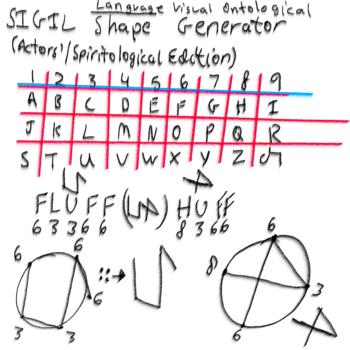 Language Visual Ontological
SIGIL Shape Generator
(Actors'/Spiritological Edition)
1 2 3 4 5 6 7 8 9
A B C D E F G H I
J K L M N O P Q R
S T U V W X Y Z
FLUFF ( ) HUFF
6 3 3 6 6 8 3 6 6
6 6 6 3 3
6 8 3 6